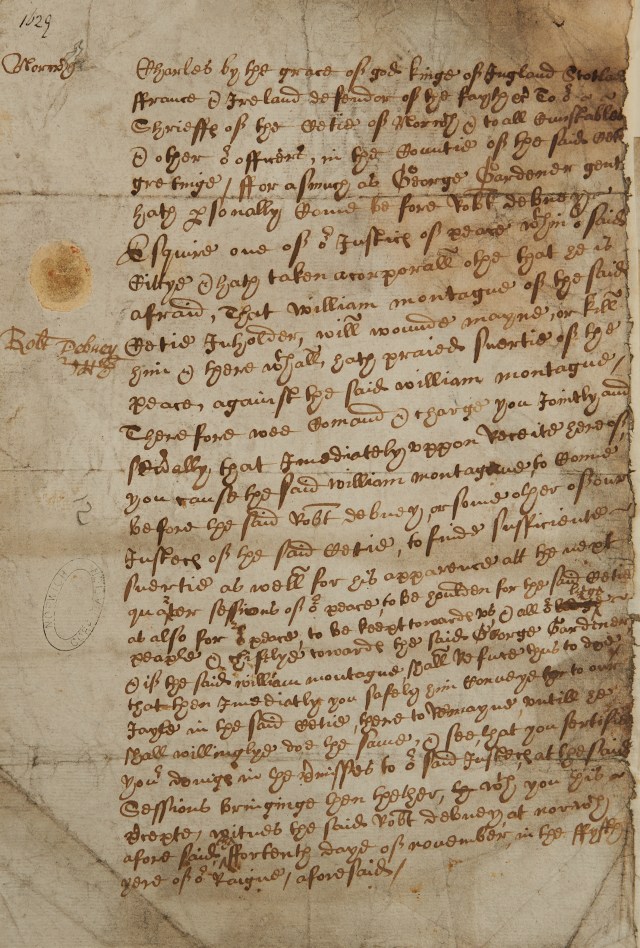 1629
Norwch
Charles by the grace of god kinge of England Scotland
ffrance & Ireland defendor of the fayth &c To or
Shrieffs of the Cetie of Norwch & to all Cunstables
& other or officers, in the Countie of the said Cetie
gretinge / ffor asmuch as George Gardener gent
hath psonally Come be fore Robt debney
Esquire one of or Justices of peace wthin or said
Cittye & hath taken a corporall othe that he is
afraid, That William montague of the said
Cetie Inholder, will wounde mayne, or kill
him & there wthall hath praied suertie of the
peace, against the said william montague /
Therefore wee Comand & charge you Jointly and
sevally, that Imediately uppon Receite hereof,
you cause the said William montague to Come
before the said Robt debney, or some other of our
Justices of the said Cetie, to finde sufficiente
suertie as well for his apparence att the next
quarter sessions of or peace, to be houlden for the said Cetie
as also for or peace, to be keept towards us, & all or
people & chiflye towards the said George Gardener
& if the said william montague, shall Refuse thus to doe
that then Imediatly you safely him Conveye to our
Jayle in the said Cetie, there to Remayne, untill he
shall willinglye doe the same, & see that you sertifie
your doings in the pmisses to or said Justices, at the said
Sessions bringinge then thether, wth you this
pcepte, witnes the said Robt debney at norwch
afore said, ffortenth daye of november, in the ffyfth
yere of or Raigne / aforesaid /
Robt Debney